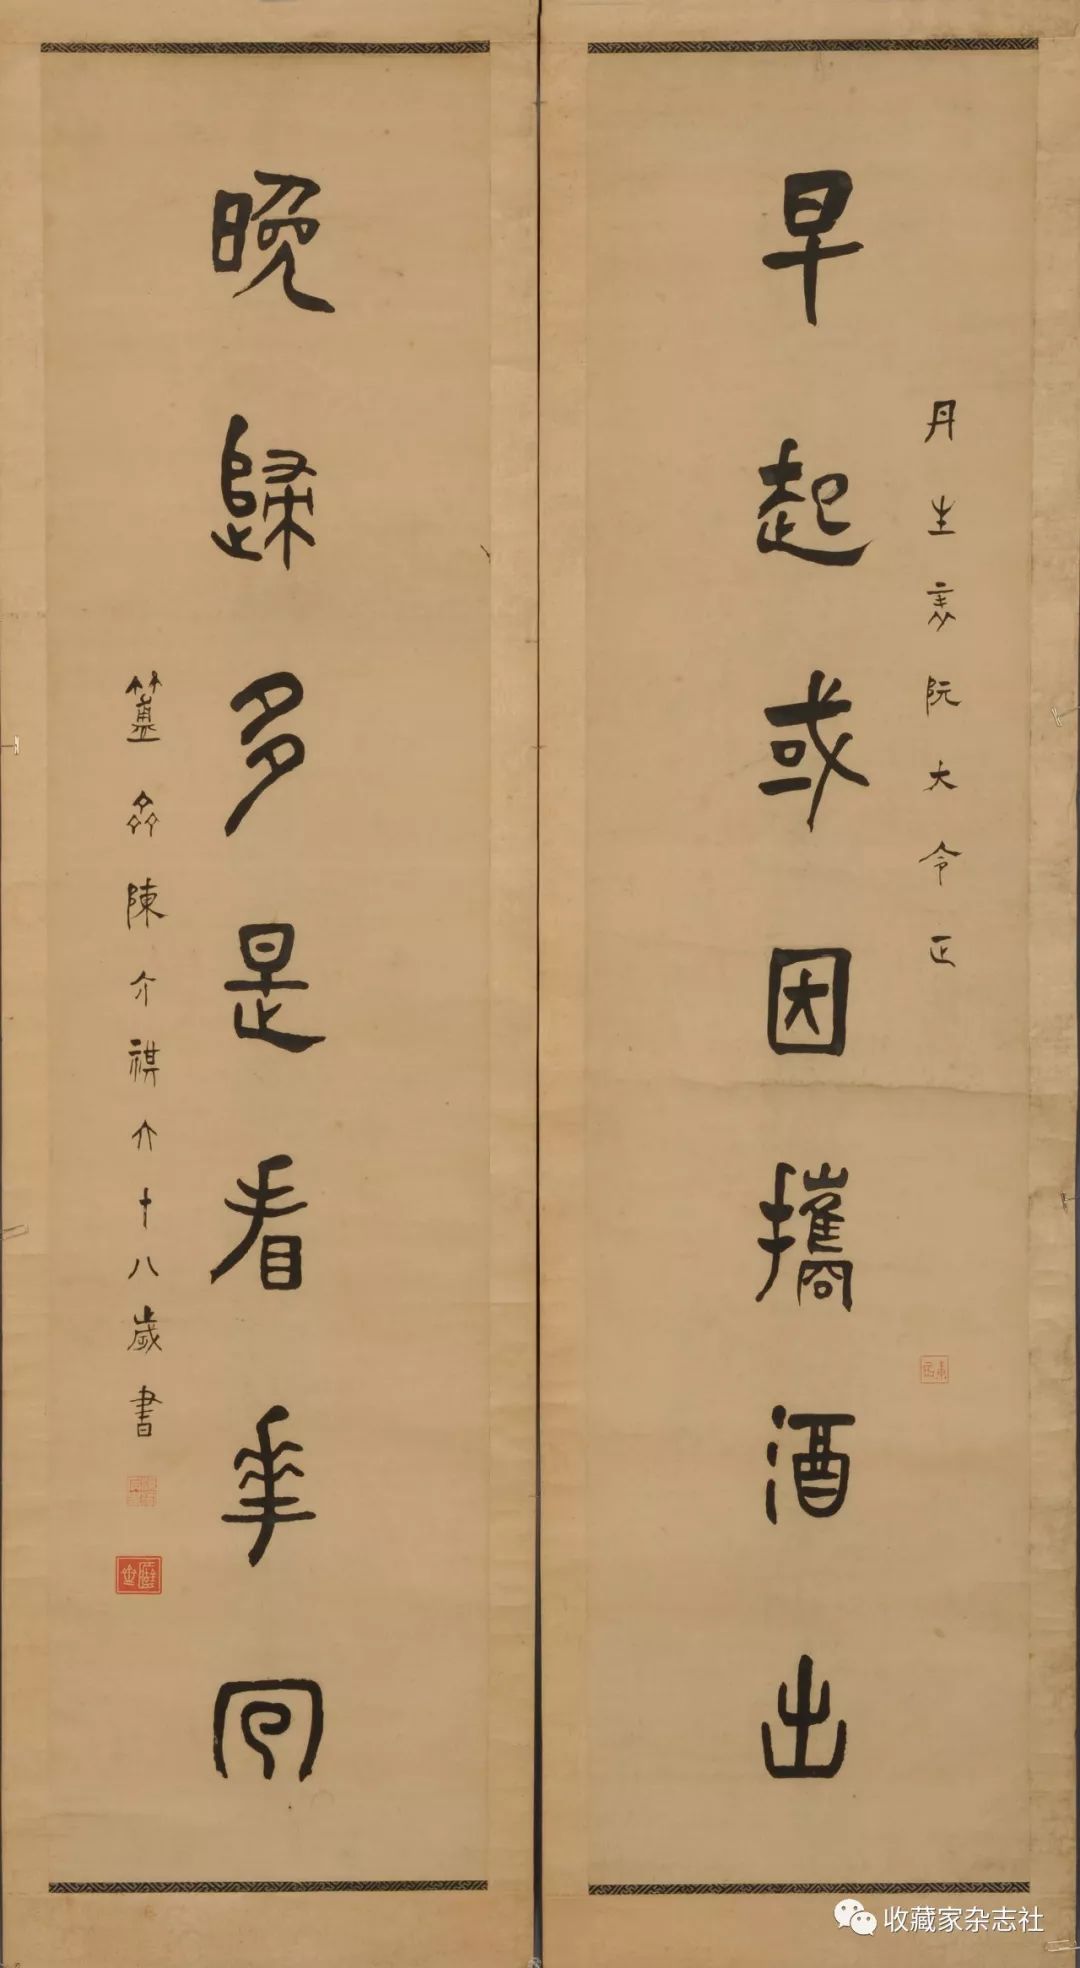 早起或因攜酒出
丹生親阮大令正
晚歸多是看華回
簠齋陳介祺六十八歲書
收藏家杂志社